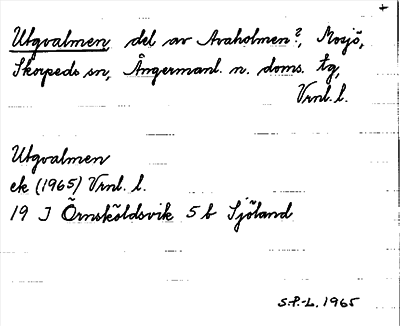 +
Utgvalmen, del av Avaholmen?, Mosjö,
Skorpeds sn, Ångermanl. n. doms. tg,
Vrnl. l.
Utgvalmen
ek (1965) Vrnl. l.
19 J Örnsköldsvik 5 b Sjöland
S.P.-L. 1965